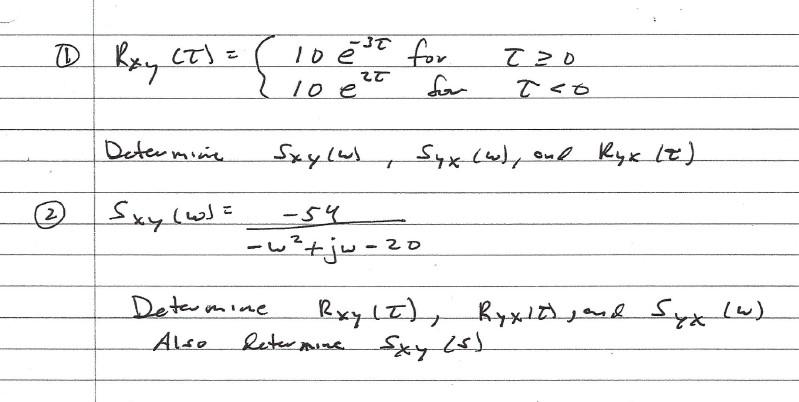 ① Rxy (τ) = { 10 e^-3τ for τ ≥ 0
10 e^2τ for τ < 0
Determine Sxy (ω), Syx (ω), and Ryx (τ)
② Sxy (ω) = -54 / (-ω² + jω - 20)
Determine Rxy (τ), Ryx (τ), and Syx (ω)
Also determine Sxy (s)